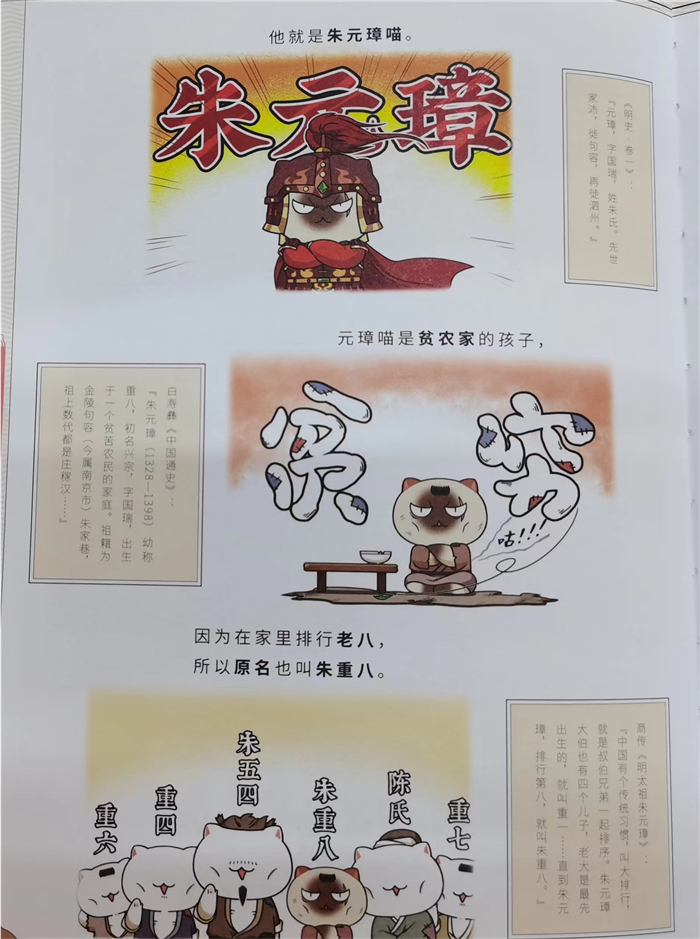 他就是朱元璋喵。
朱元璋
《明史·卷一》：
『元璋，字国瑞，姓朱氏。先世
家沛，徙句容，再徙泗州。』
元璋喵是贫农家的孩子，
穷苦
咕!!!
白寿彝《中国通史》：
『朱元璋（1328—1398）幼称
重八，初名兴宗，字国瑞，出生
于一个贫苦农民的家庭。祖籍为
金陵句容（今属南京市）朱家巷，
祖上数代都是庄稼汉……』
因为在家里排行老八，
所以原名也叫朱重八。
重六
重四
朱五四
朱重八
陈氏
重七
商传《明太祖朱元璋》：
『中国有个传统习惯，叫大排行，
就是叔伯兄弟一起排序。朱元璋
大伯也有四个儿子，老大是最先
出生的，就叫重一……直到朱元
璋，排行第八，就叫朱重八。』